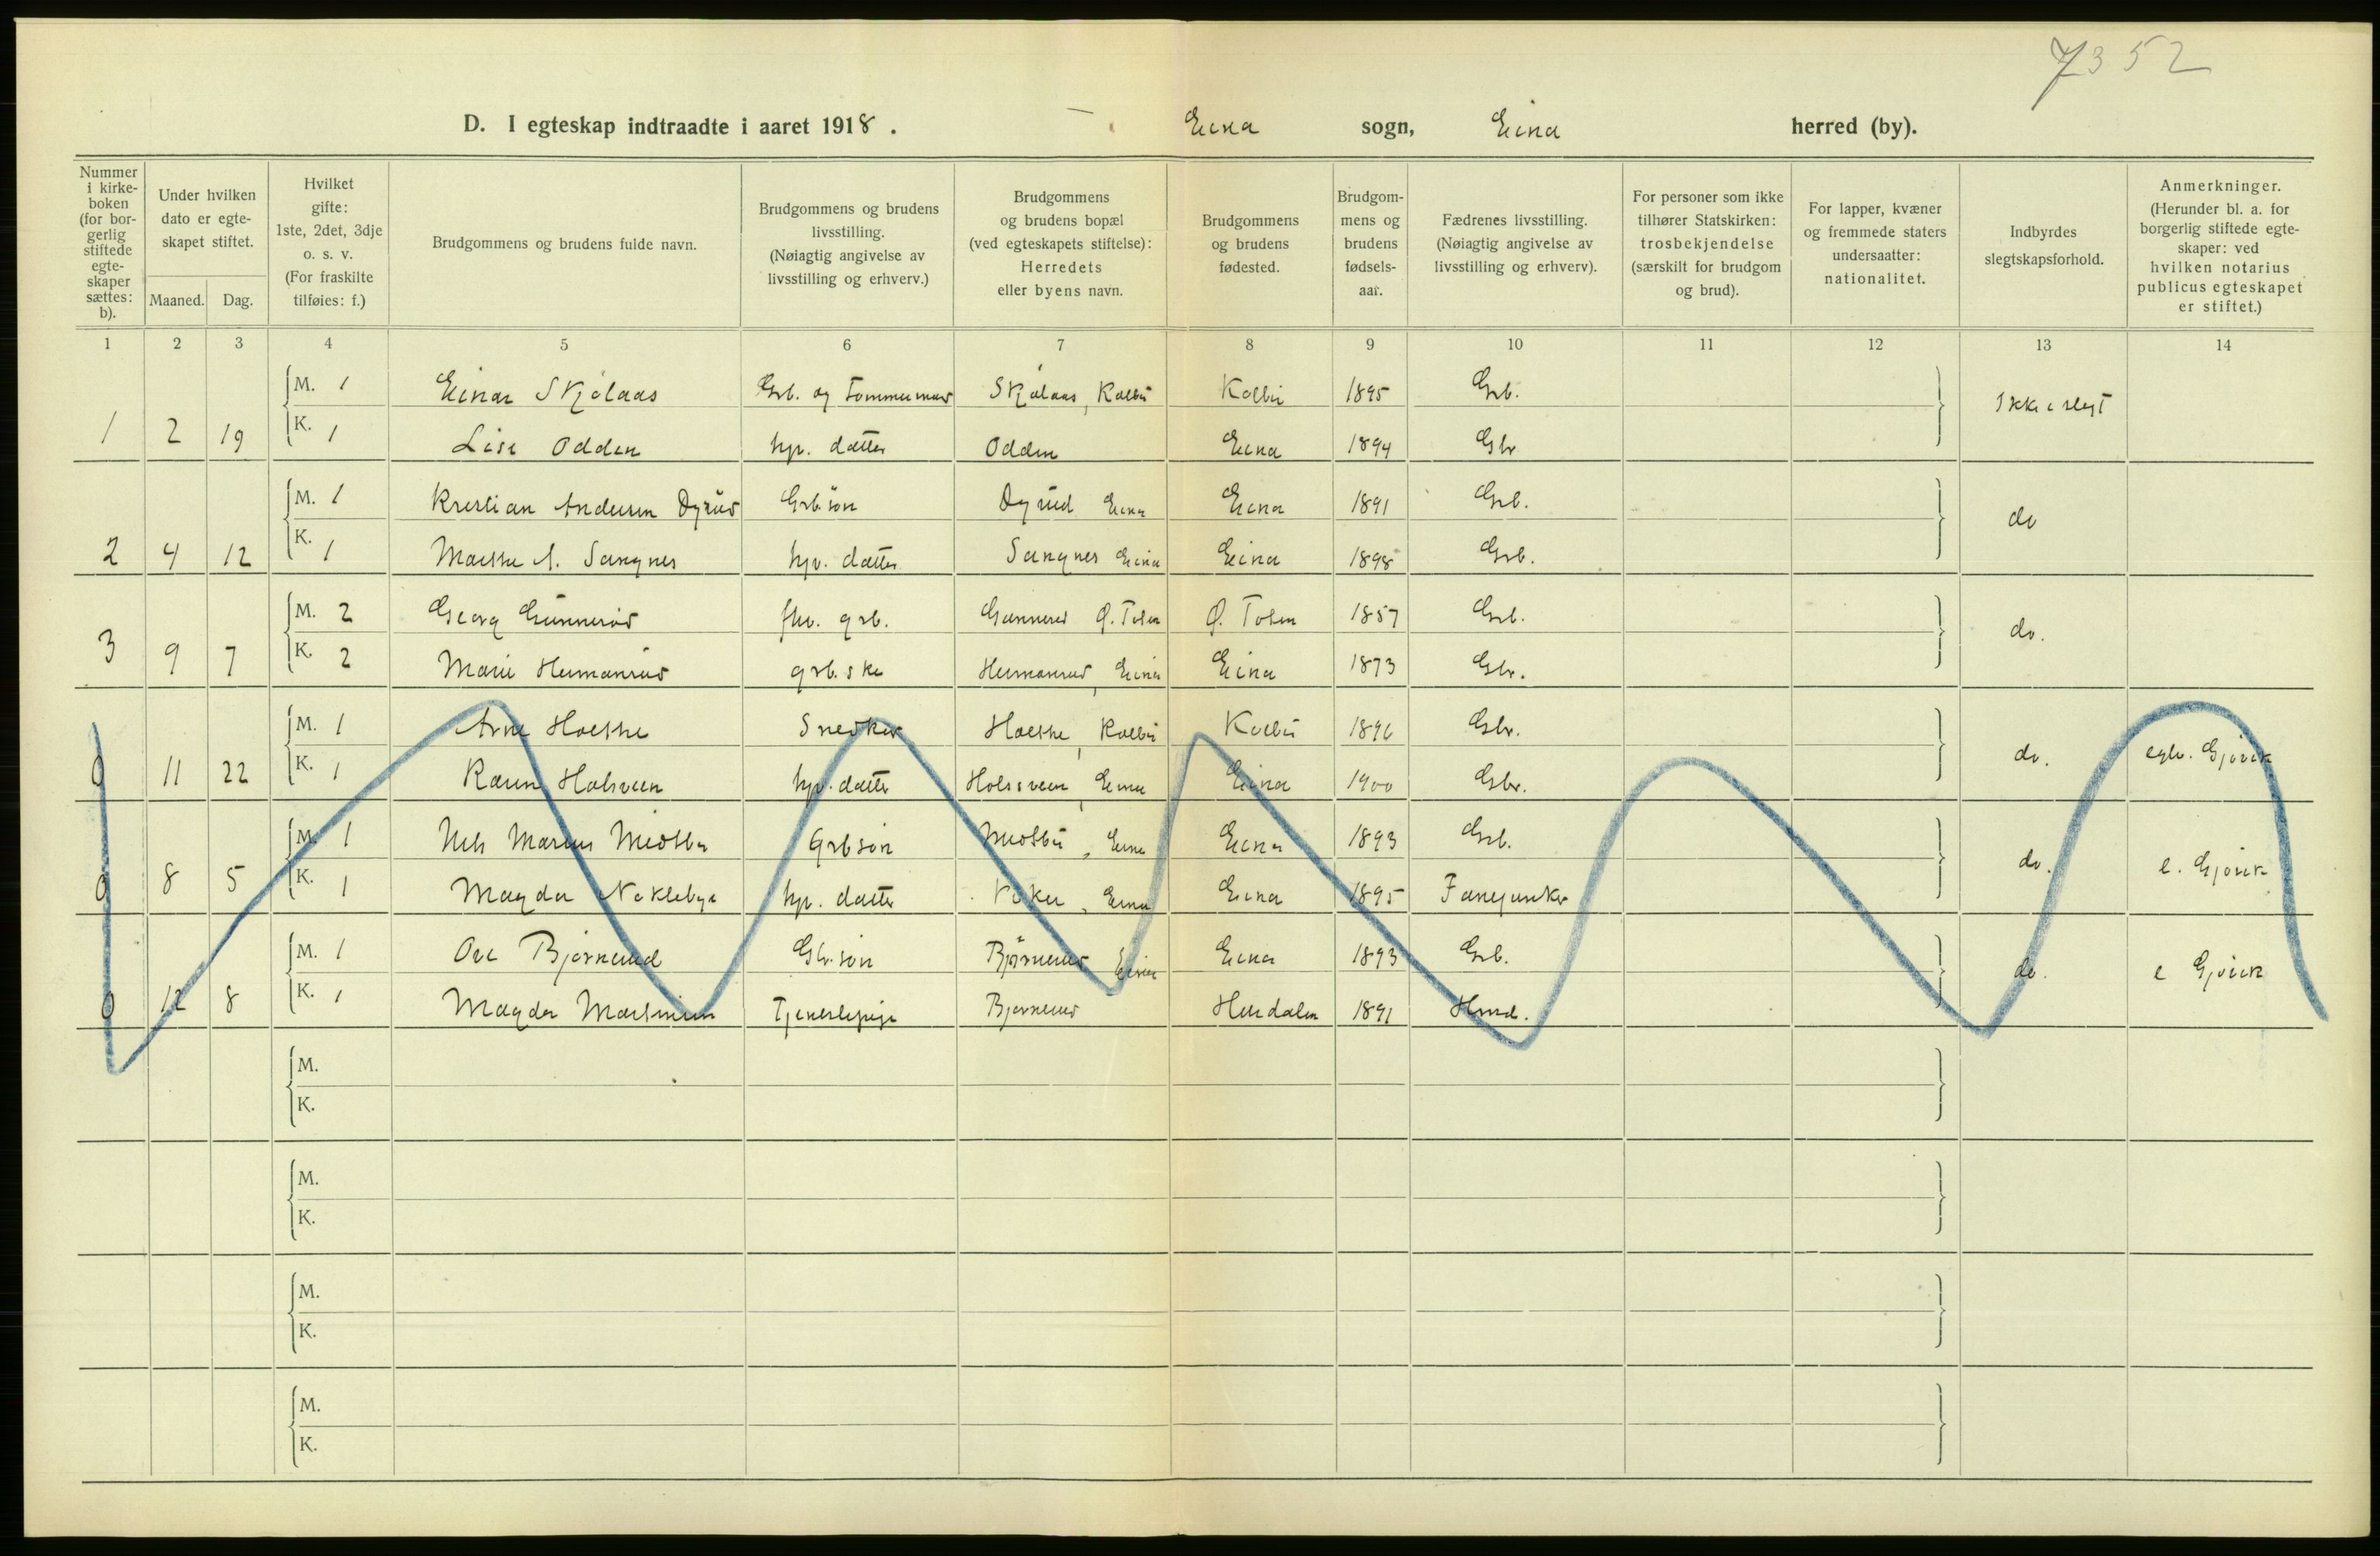 7352
D. I egteskap indtraadte i aaret 1918. Eina sogn, Eina herred (by).
Nummer i kirkeboken (for borgerlig stiftede egteskaper sættes: b).
Under hvilken dato er egteskapet stiftet.
Maaned. Dag.
Hvilket gifte: 1ste, 2det, 3dje o. s. v. (For fraskilte tilføies: f.)
Brudgommens og brudens fulde navn.
Brudgommens og brudens livsstilling. (Nøiagtig angivelse av livsstilling og erhverv.)
Brudgommens og brudens bopæl (ved egteskapets stiftelse): Herredets eller byens navn.
Brudgommens og brudens fødested.
Brudgommens og brudens fødselsaar.
Fædrenes livsstilling. (Nøiagtig angivelse av livsstilling og erhverv).
For personer som ikke tilhører Statskirken: trosbekjendelse (særskilt for brudgom og brud).
For lapper, kvæner og fremmede staters undersaatter: nationalitet.
Indbyrdes slegtskapsforhold.
Anmerkninger. (Herunder bl. a. for borgerlig stiftede egteskaper: ved hvilken notarius publicus egteskapet er stiftet.)
1 2 3 4 5 6 7 8 9 10 11 12 13 14
M. 1 Einar Skjølaas Grb. og Tømmermand Skjølaas, Kolbu Kolbu 1895 Grb. Ikke i slegt
1 2 19 K. 1 Lise Odden hjv. datter Odden Eina 1894 Gbr
M. 1 Kristian Andersen Dyrud Grb.søn Dyrud Eina Eina 1891 Grb. do
2 4 12 K. 1 Marthe A. Sangnes hjv. datter Sangnes Eina Eina 1898 Grb.
M. 2 Georg Gunnerud fhv. grb. Gunnerud Ø. Toten Ø. Toten 1857 Grb. do.
3 9 7 K. 2 Marie Hermanrud grb.ske Hermanrud, Eina Eina 1873 Gbr.
M. 1 Arne Hoelshe Snedker Hoelshe, Kolbu Kolbu 1896 Gbr. do. egtv. Gjøvik
0 11 22 K. 1 Karen Holsveen hjv. datter Holsveen, Eina Eina 1900 Gbr.
M. 1 Nels Marius Midtbu Grbsøn Midtbu, Eina Eina 1893 Grb. do. e. Gjøvik
0 8 5 K. 1 Magda Neklebye hjv. datter Eina Eina 1895 Fanejunker
M. 1 Ove Bjørnerud Gbr.søn Bjørnerud Eina Eina 1893 Grb. do. e Gjøvik
0 12 8 K. 1 Magda Martinsen Tjenestepige Bjørnerud Hurdalen 1891 Hmd.
M.
K.
M.
K.
M.
K.
M.
K.